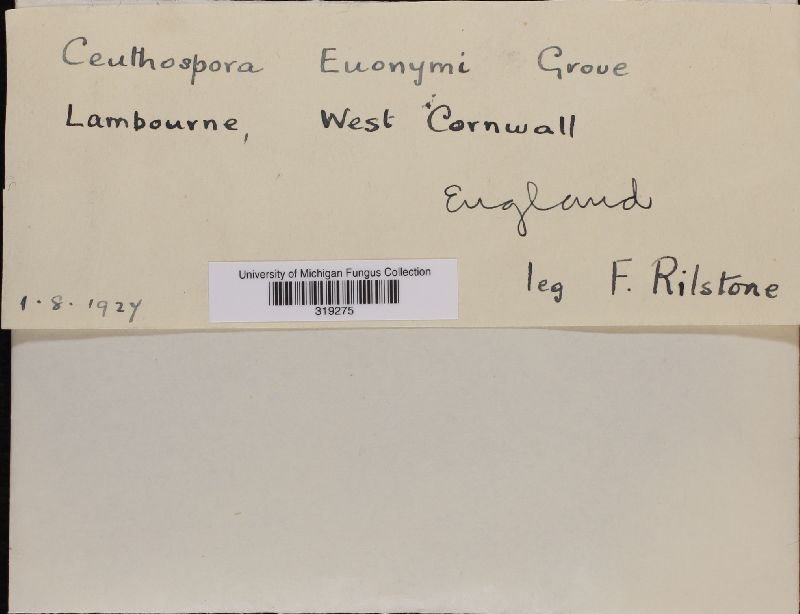 Ceuthospora Euonymi Grove
Lambourne, West Cornwall
England
leg F. Rilstone
University of Michigan Fungus Collection
319275
1.8.1927